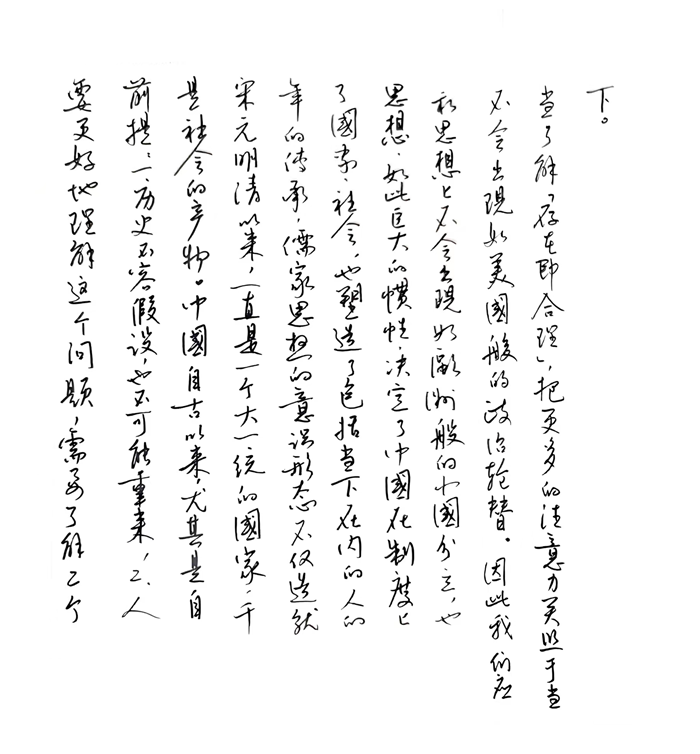 要更好地理解这个问题，需要了解二个
前提：一、历史不容假设，也不可能重来，二、人
是社会的产物。中國自古以来，尤其是自
宋元明清以来，一直是一个大一统的國家，千
年的传承，儒家思想的意识形态不仅造就
了國家社会，也塑造了包括当下在内的人的
思想。如此巨大的惯性，决定了中國在制度上
和思想上不会出现如歐洲般的小國分立，也
不会出现如美國般的政治轮替。因此我们应
当了解「存在即合理」，把更多的注意力关照于当
下。